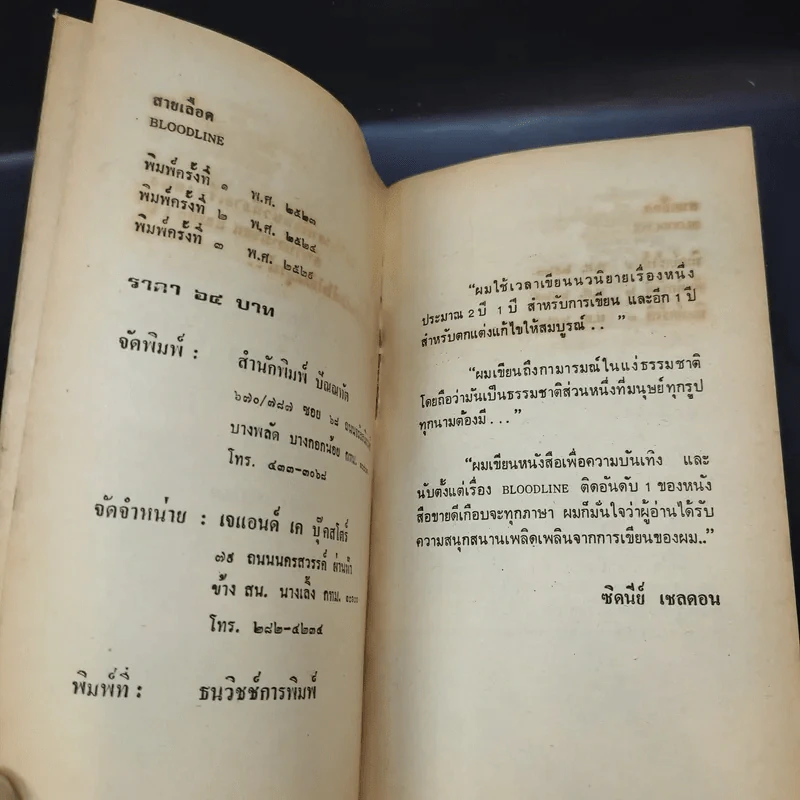 สายเลือด
BLOODLINE
พิมพ์ครั้งที่ ๑ พ.ศ. ๒๕๒๓
พิมพ์ครั้งที่ ๒ พ.ศ. ๒๕๒๔
พิมพ์ครั้งที่ ๓ พ.ศ.
ราคา ๖๔ บาท
จัดพิมพ์ : สำนักพิมพ์ บัณณทัต
๖๗๐/๗๘๗ ซอย ๖๘
บางพลัด บางกอกน้อย กทม.
โทร. ๔๓๓-๓๐๖๘
จัดจำหน่าย : เจแอนด์ เค บุ๊คสโตร์
๗๙ ถนนนครสวรรค์ ผ่านฟ้า
ข้าง สน. นางเลิ้ง กทม.
โทร. ๒๘๒-๔๒๓๔
พิมพ์ที่ : ธนวิชช์การพิมพ์
“ผมใช้เวลาเขียนนวนิยายเรื่องหนึ่ง
ประมาณ 2 ปี 1 ปี สำหรับการเขียน และอีก 1 ปี
สำหรับตกแต่งแก้ไขให้สมบูรณ์ . . ”
“ผมเขียนถึงกามารมณ์ในแง่ธรรมชาติ
โดยถือว่ามันเป็นธรรมชาติส่วนหนึ่งที่มนุษย์ทุกรูป
ทุกนามต้องมี . . .”
“ผมเขียนหนังสือเพื่อความบันเทิง และ
นับตั้งแต่เรื่อง BLOODLINE ติดอันดับ 1 ของหนัง
สือขายดีเกือบจะทุกภาษา ผมก็มั่นใจว่าผู้อ่านได้รับ
ความสนุกสนานเพลิดเพลินจากการเขียนของผม..”
ซิดนีย์ เชลดอน